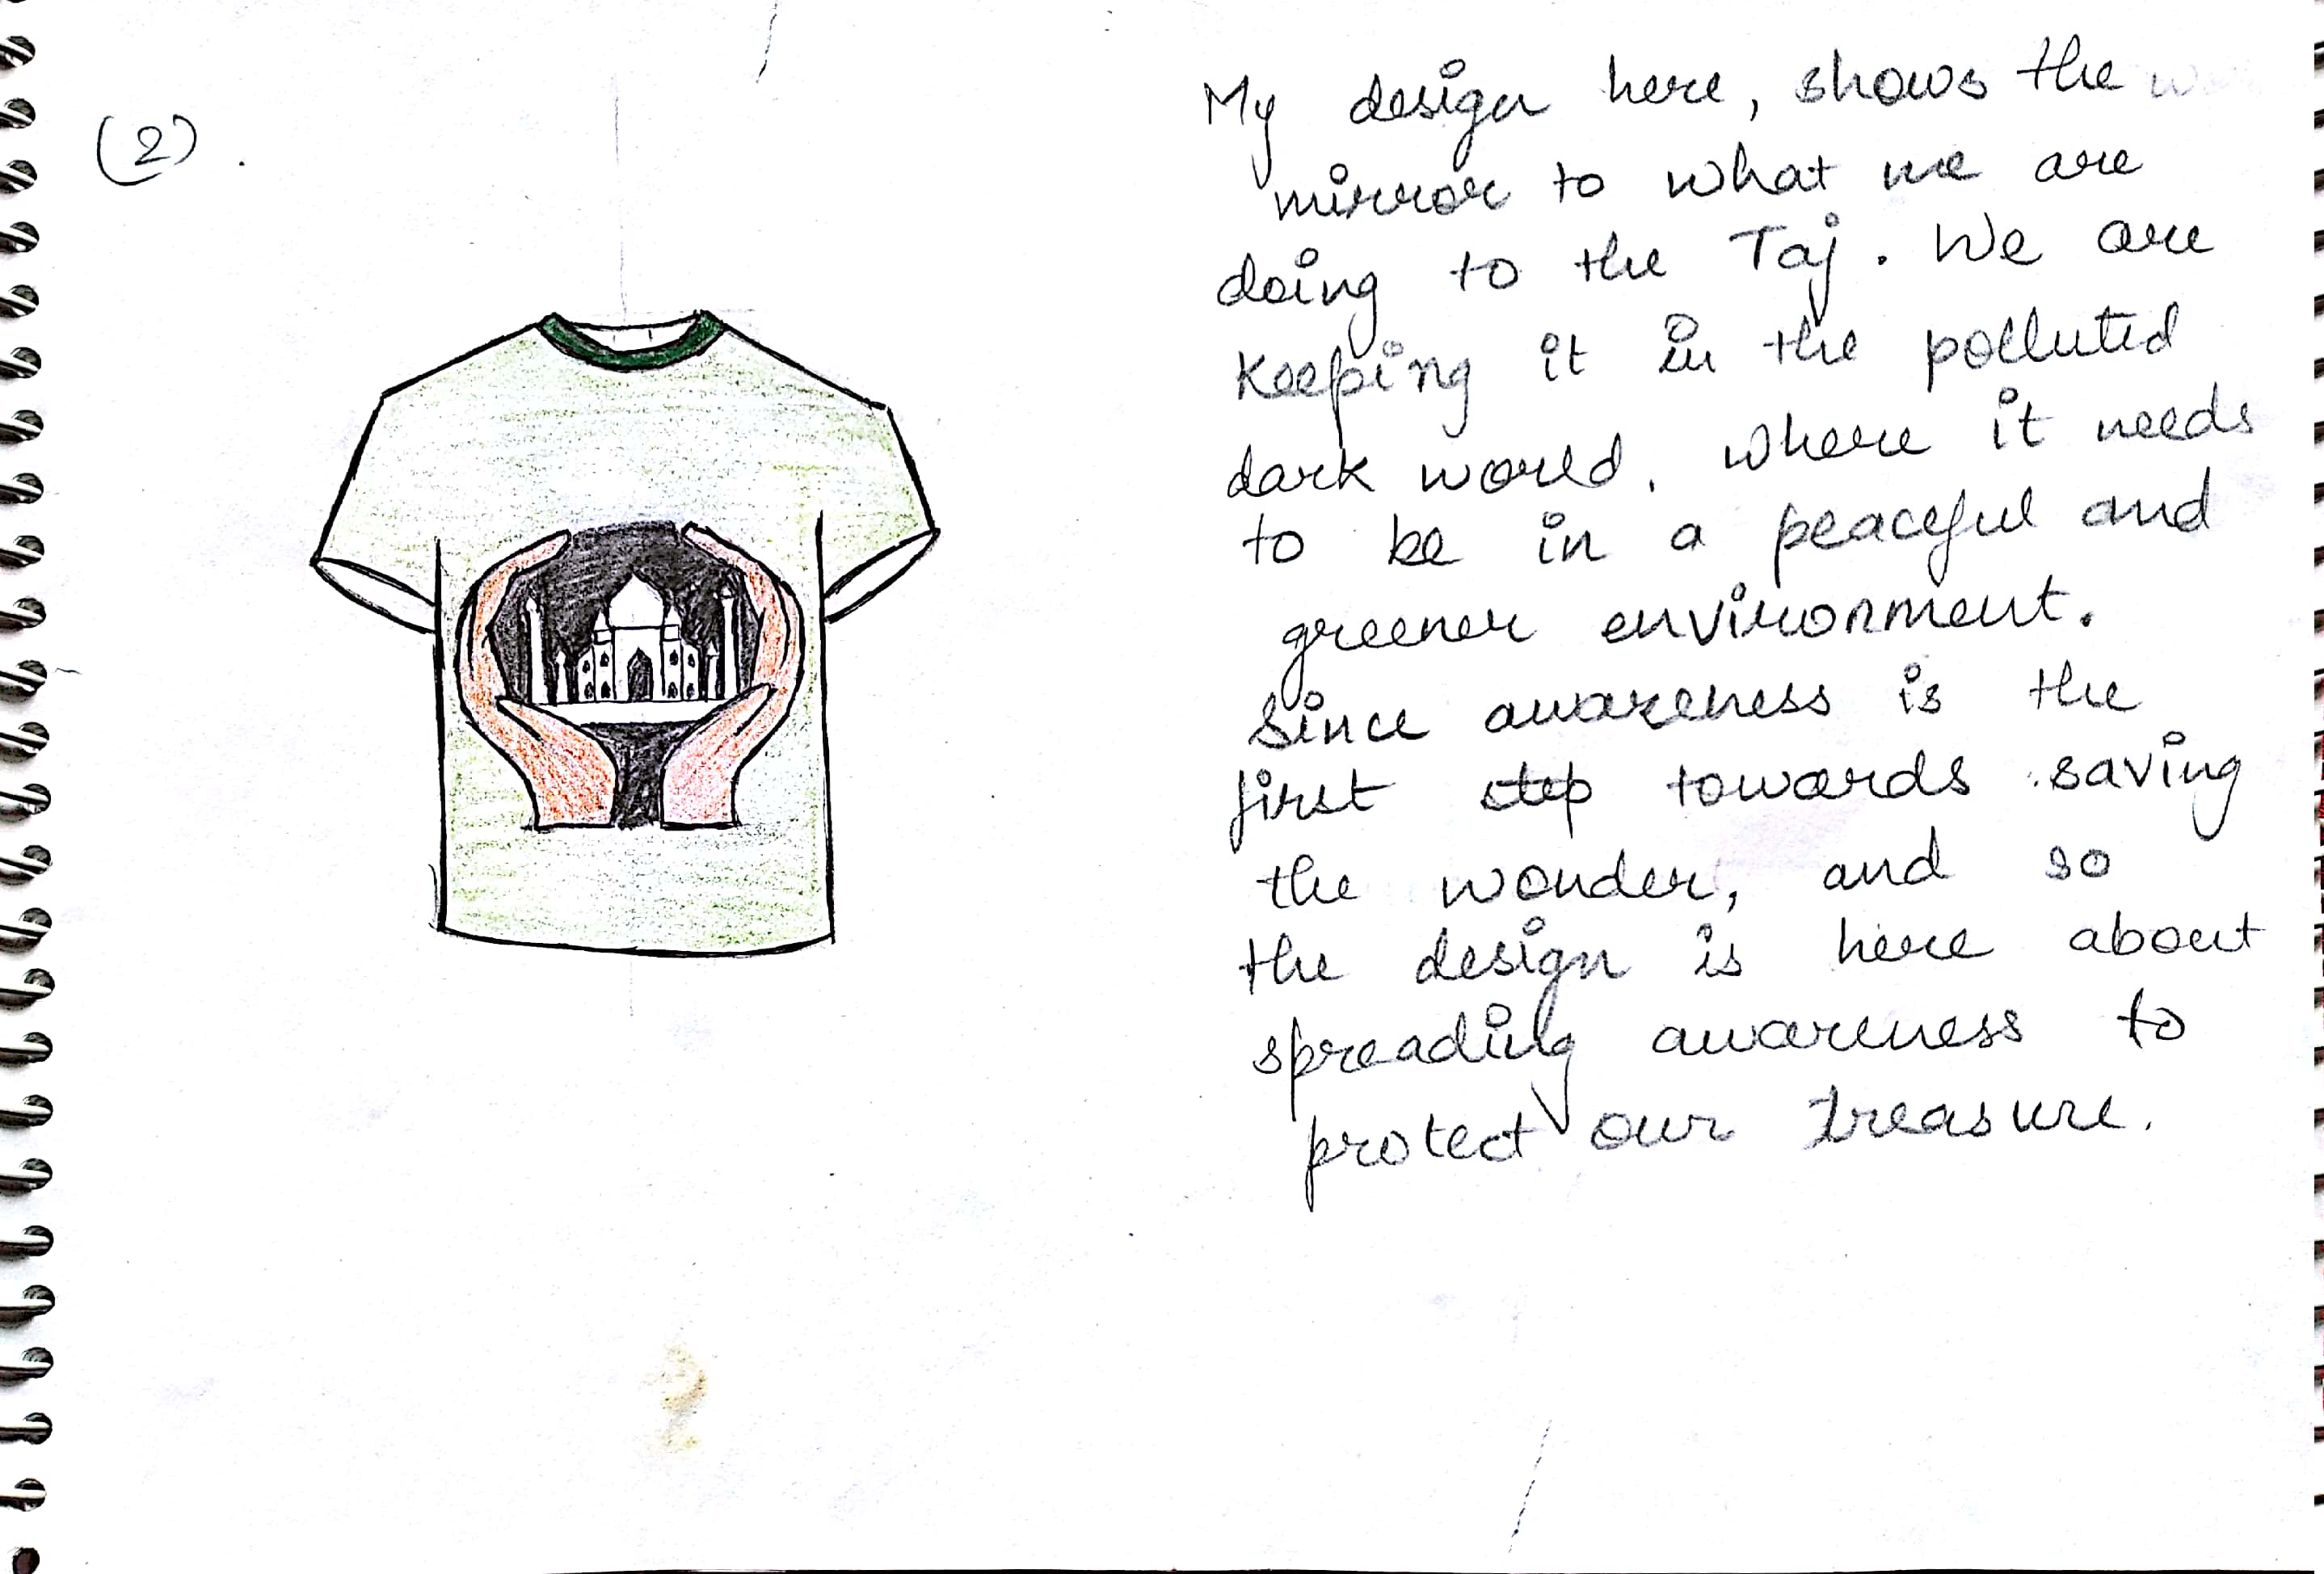 (2).
My design here, shows the
mirror to what we are
doing to the Taj. We are
keeping it in the polluted
dark world, where it needs
to be in a peaceful and
greener environment.
Since awareness is the
first step towards saving
the wonder, and so
the design is here about
spreading awareness to
protect our treasure.